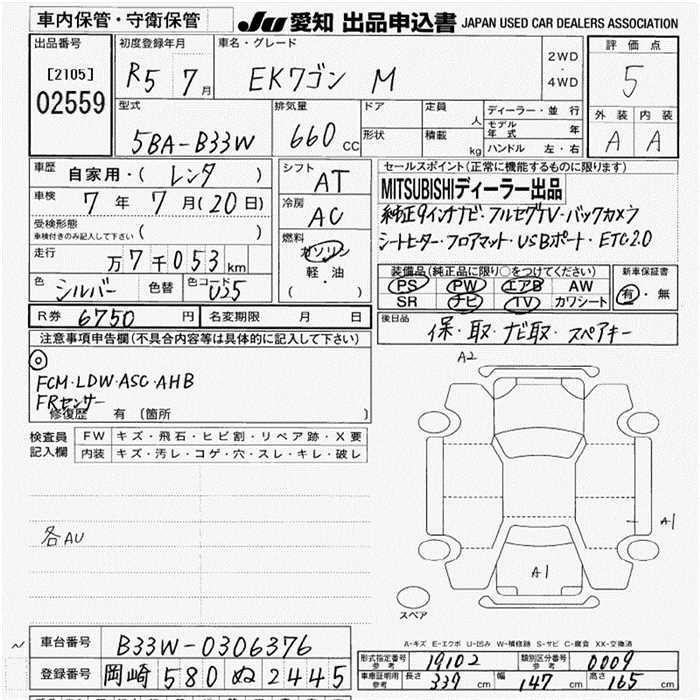 車内保管・守衛保管
JU 愛知 出品申込書 JAPAN USED CAR DEALERS ASSOCIATION
出品番号
[2105]
02559
初度登録年月
R5 7月
車名・グレード
EKワゴン M
2WD
・
4WD
評価点
5
外装 内装
A A
型式
5BA-B33W
排気量
660 CC
ドア
形状
定員 人
積載 kg
ディーラー・並行
モデル年式 年
ハンドル 左・右
車歴 自家用・( レンタ )
車検 7年 7月(20日)
受検形態
車検付きのみ記入して下さい ( )
走行 万7千053km
色 シルバー 色替 色コード U25
シフト AT
冷房 AC
燃料 ガソリン
軽・油
( ・ )
セールスポイント(正常に機能するものに限ります)
MITSUBISHIディーラー出品
純正9インチナビ・フルセグTV・バックカメラ
シートヒーター・フロアマット・USBポート・ETC2.0
装備品(純正品に限り○をつけてください)
PS PW エアB AW
SR ナビ TV カワシート
新車保証書
有・無
R券 6750円 名変期限 月 日
後日品 保・取・ナビ取・スペアキー
注意事項申告欄(不具合内容等は具体的に記入して下さい)
◎
FCM・LDW・ASC・AHB
FRセンサー
修復歴 有 〔箇所 〕
検査員記入欄
FW キズ・飛石・ヒビ割・リペア跡・X要
内装 キズ・汚レ・コゲ・穴・スレ・キレ・破レ
各AU
A2
A1
A1
スペア
A-キズ E-エクボ U-凹み W-補修跡 S-サビ C-腐食 XX-交換済
車台番号 B33W-0306376
登録番号 岡崎 580 ぬ 2445
形式指定番号 参考 19102 類別区分番号 参考 0009
車庫証明用 参考 長さ 339cm 幅 147cm 高さ 165cm